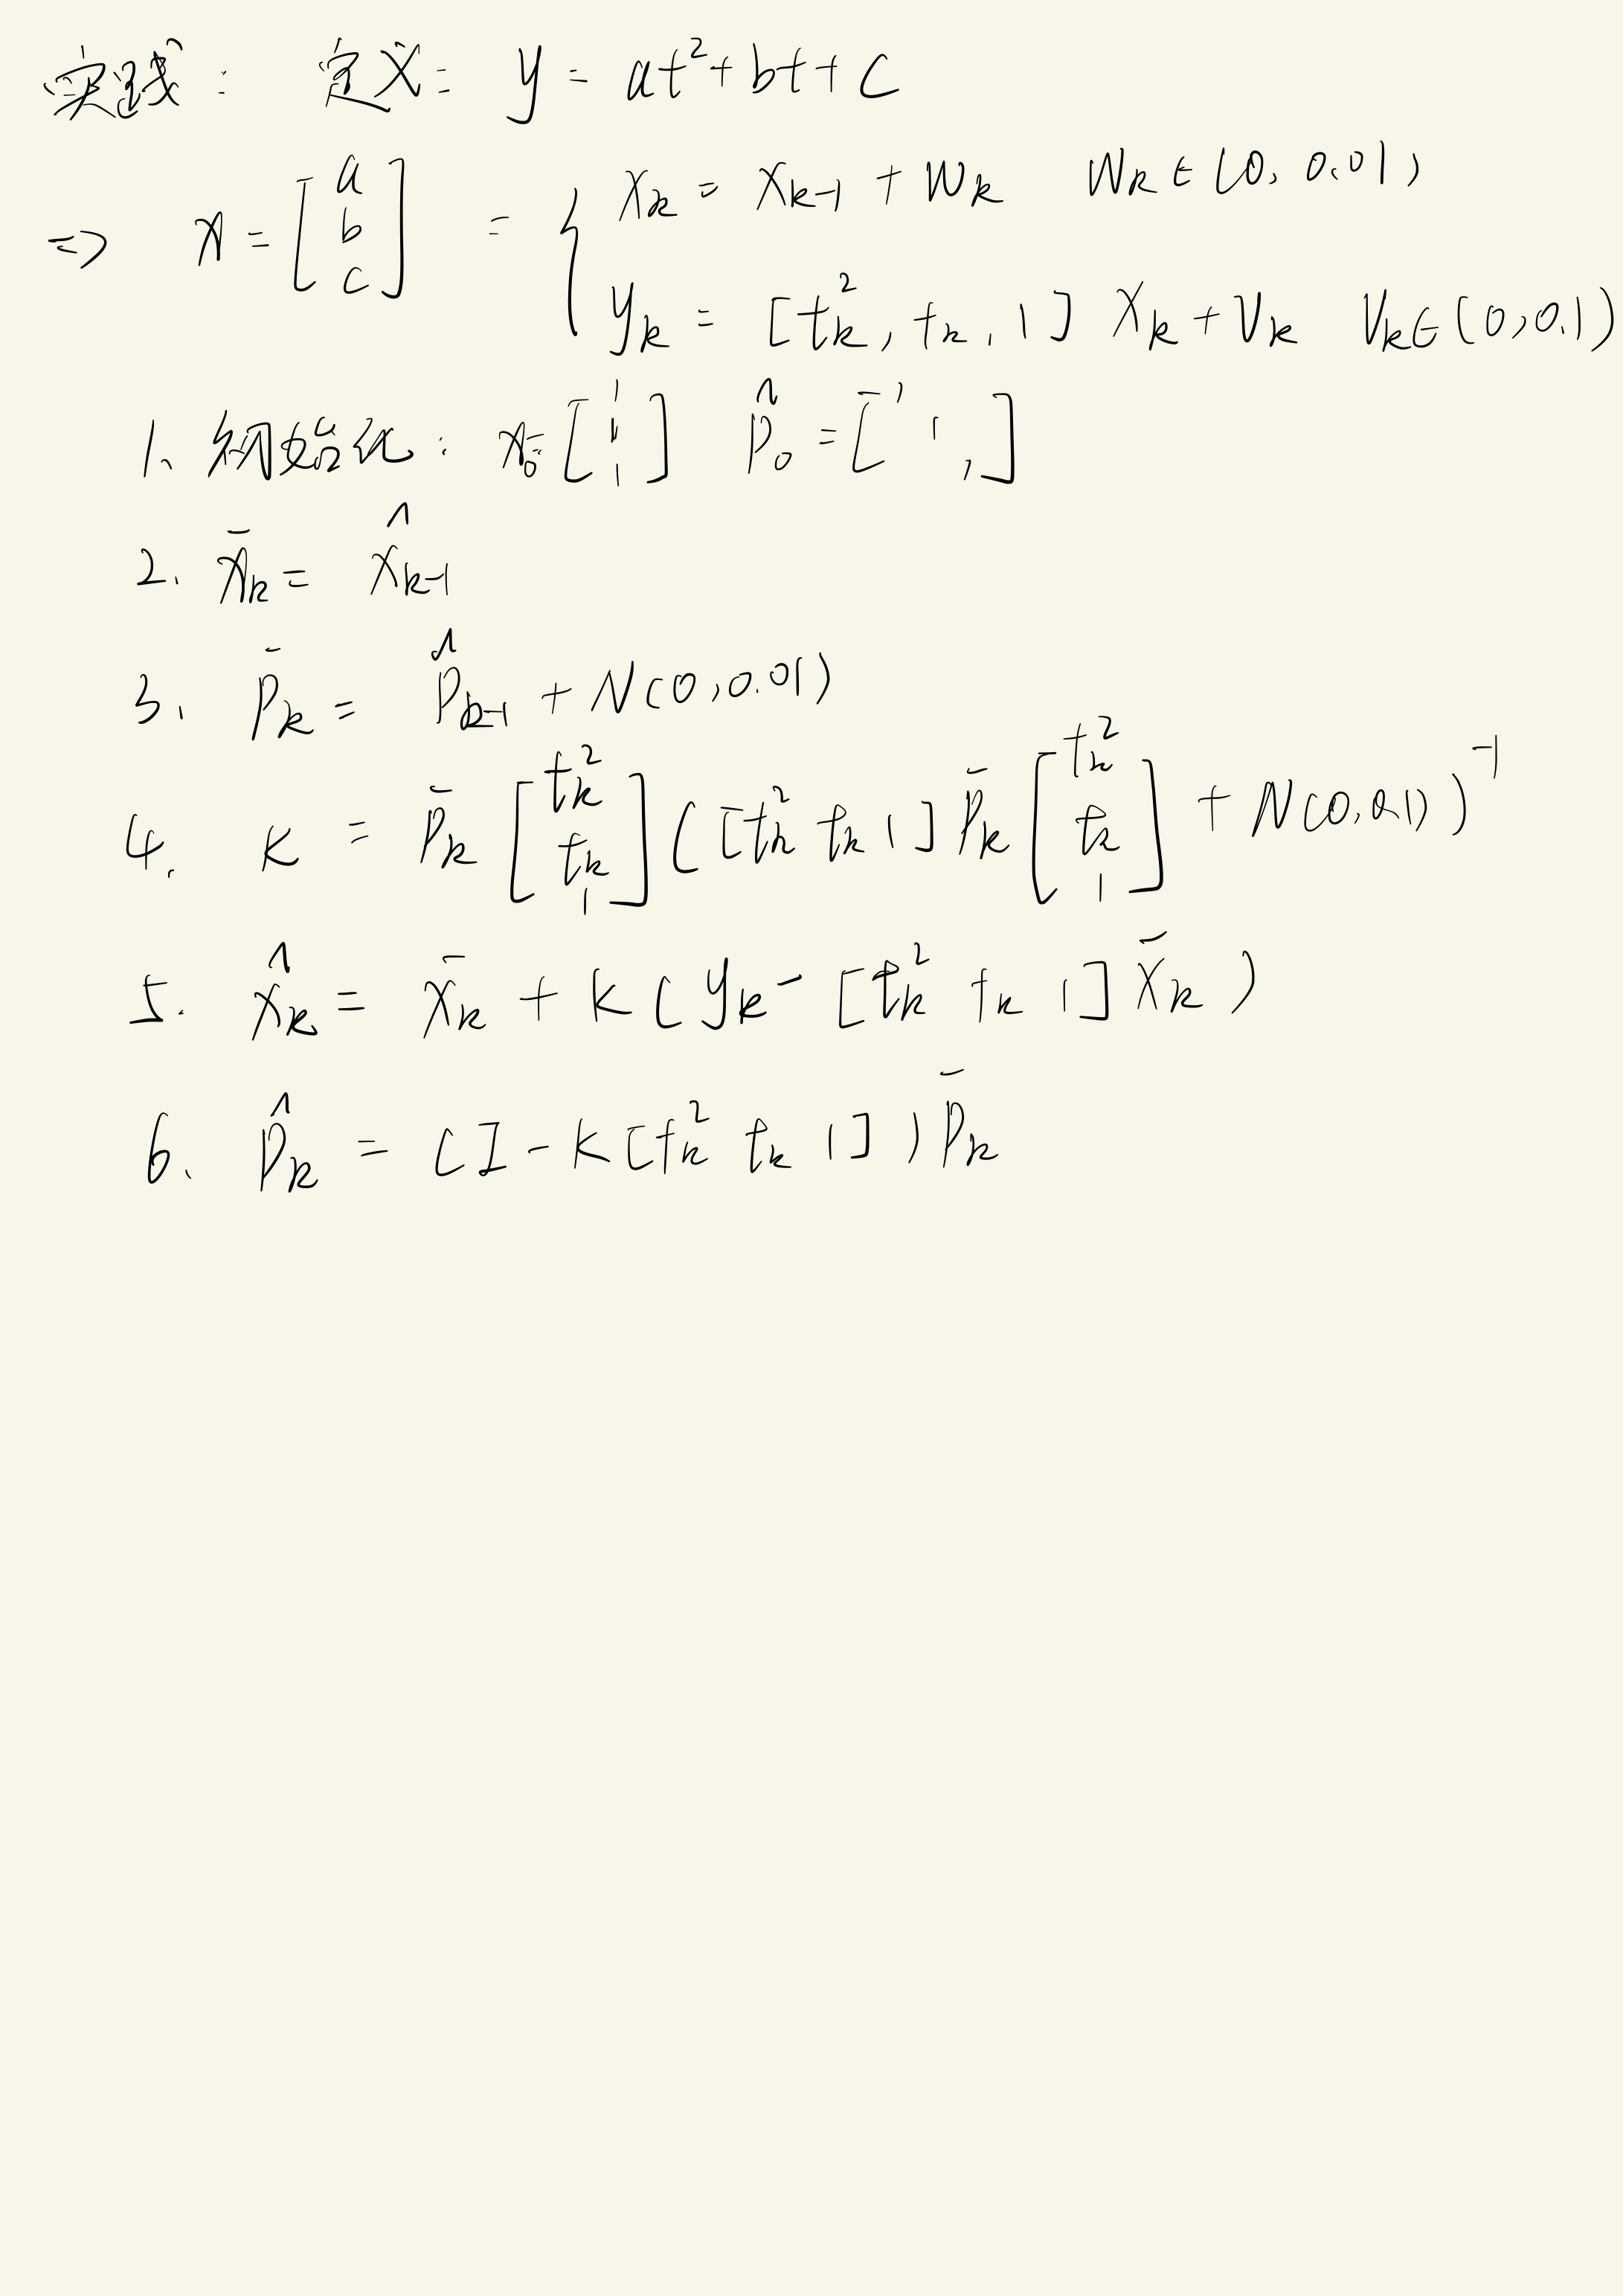 实践： 定义： y = at² + bt + c
⇒ x = [a b c] = { x_k = x_{k-1} + w_k   w_k ∈ (0, 0.01)
y_k = [t_k², t_k, 1] x_k + v_k   v_k ∈ (0, 0.1)
1. 初始化： x_0 = [1 1 1]   P̂_0 = [1 1 1]
2. x̄_k = x̂_{k-1}
3. P̄_k = P̂_{k-1} + N(0, 0.01)
4. K = P̄_k [t_k² t_k 1] ([t_k² t_k 1] P̄_k [t_k² t_k 1] + N(0, 0.1))^{-1}
5. x̂_k = x̄_k + K (y_k - [t_k² t_k 1] x̄_k)
6. P̂_k = (I - K [t_k² t_k 1]) P̄_k